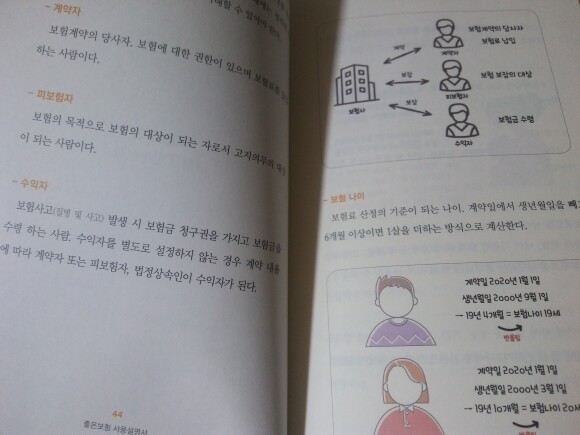 할 수 있어야 한다.
- 계약자
보험계약의 당사자. 보험에 대한 권한이 있으며 보험료를
하는 사람이다.
- 피보험자
보험의 목적으로 보험의 대상이 되는 자로서 고지의무의 대상
이 되는 사람이다.
- 수익자
보험사고(질병 및 사고) 발생 시 보험금 청구권을 가지고 보험금을
수령 하는 사람. 수익자를 별도로 설정하지 않는 경우 계약 내용
에 따라 계약자 또는 피보험자, 법정상속인이 수익자가 된다.
44
좋은보험 사용설명서
보험사
계약
계약자
보험계약의 당사자
보험료 납입
보장
피보험자
보험 보장의 대상
보장
수익자
보험금 수령
- 보험 나이
보험료 산정의 기준이 되는 나이. 계약일에서 생년월일을 빼고
6개월 이상이면 1살을 더하는 방식으로 계산한다.
계약일 2020년 1월 1일
생년월일 2000년 9월 1일
→ 19년 4개월 = 보험나이 19세
반올림
계약일 2020년 1월 1일
생년월일 2000년 3월 1일
→ 19년 10개월 = 보험나이 20세
반올림